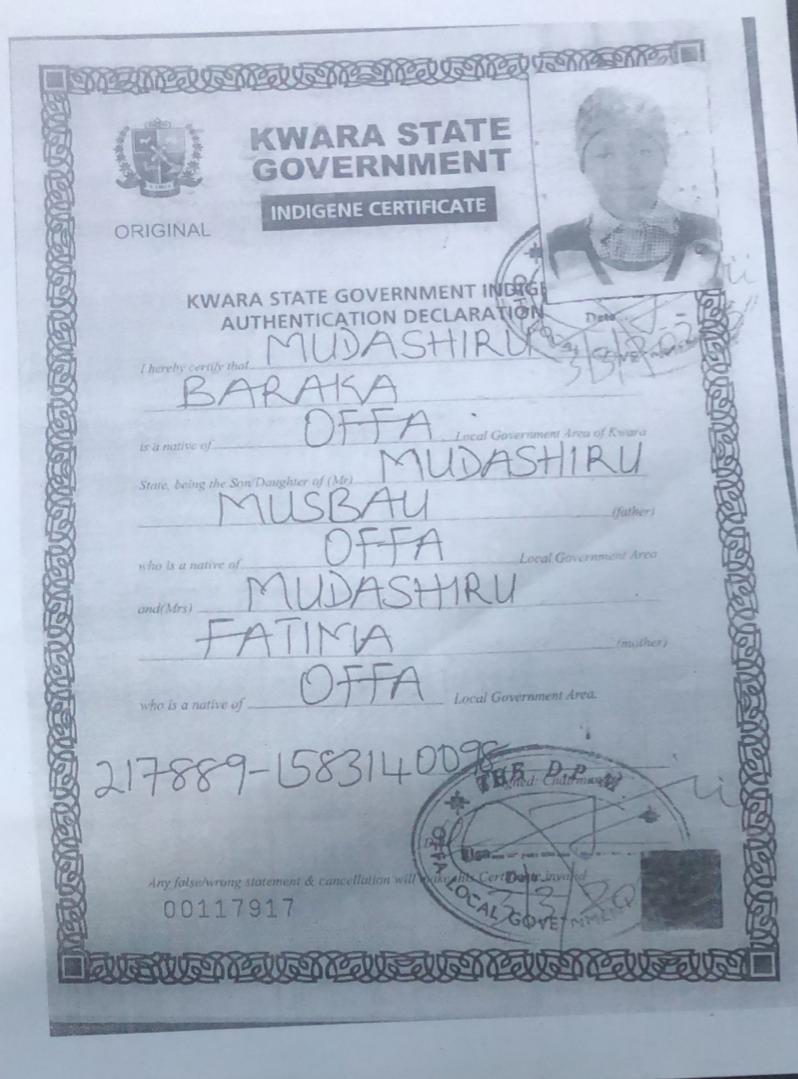 KWARA STATE
GOVERNMENT
INDIGENE CERTIFICATE
ORIGINAL
KWARA STATE GOVERNMENT INDIGE
AUTHENTICATION DECLARATION
Date
I hereby certify that MUDASHIRU
BARAKA
is a native of OFFA Local Government Area of Kwara
State, being the Son/Daughter of (Mr) MUDASHIRU
MUSBAU (father)
who is a native of OFFA Local Government Area
and(Mrs) MUDASHIRU
FATIMA (mother)
who is a native of OFFA Local Government Area.
217889-1583140098
THE D.P.M
Signed: Chairman
Sign
Any false/wrong statement & cancellation will make this Certificate invalid
Date
3/3/20
OFFA LOCAL GOVERNMENT
00117917